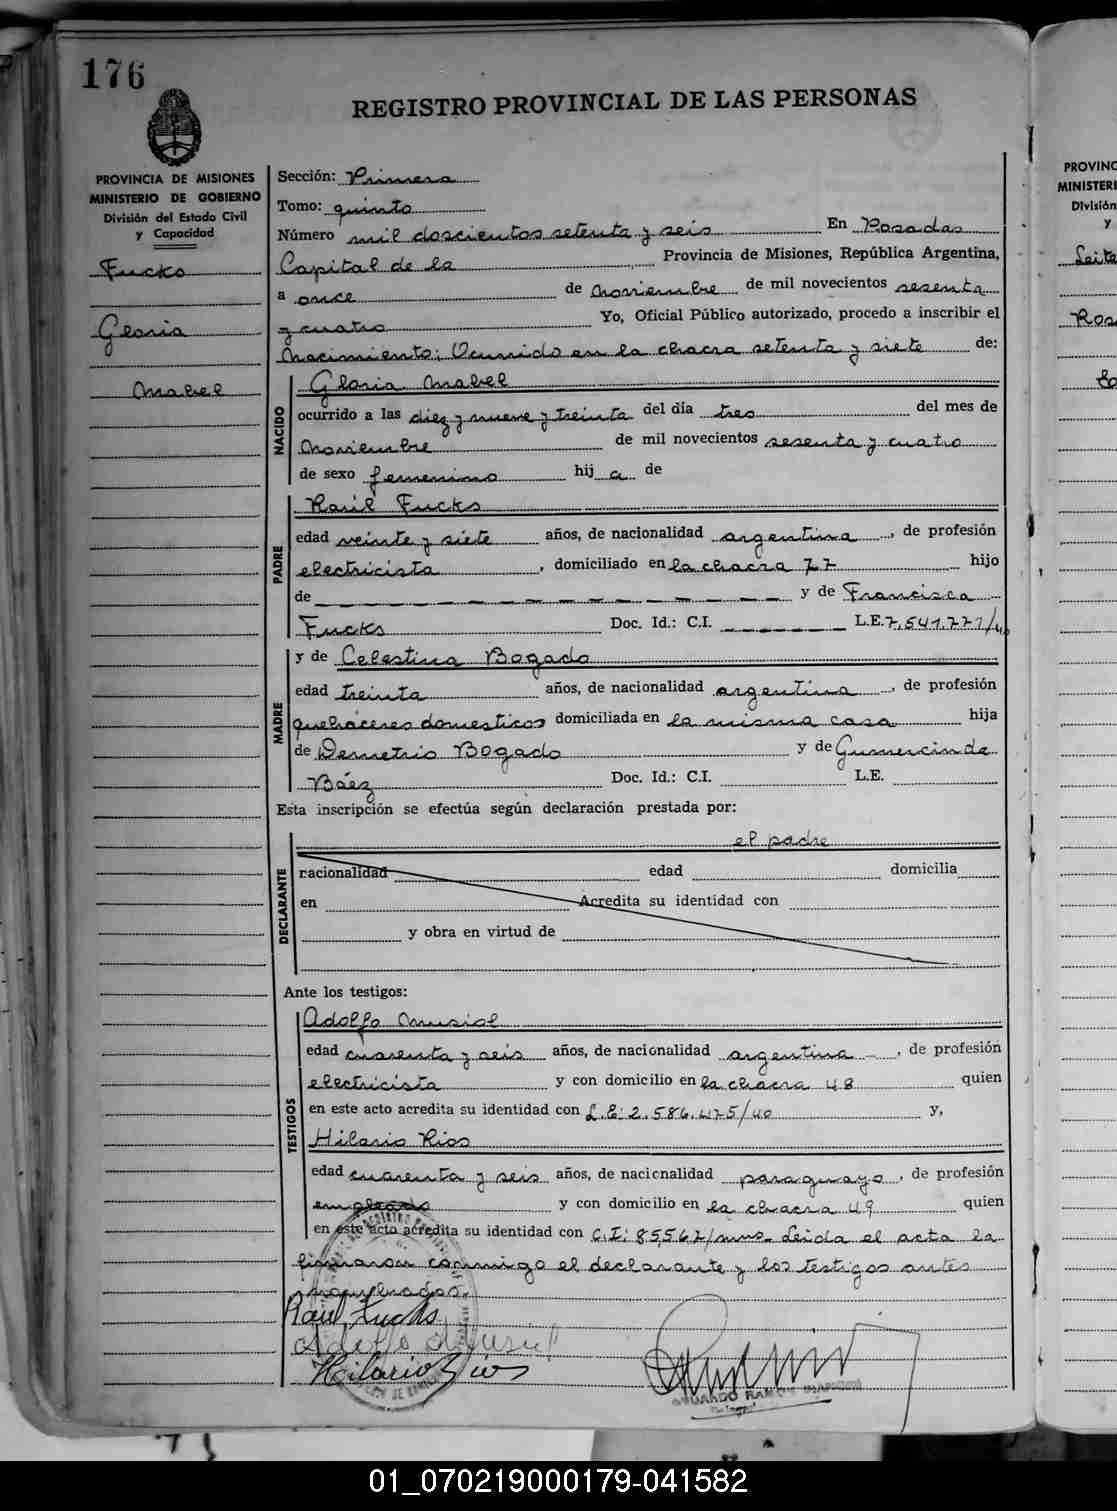 176
REGISTRO PROVINCIAL DE LAS PERSONAS
PROVINCIA DE MISIONES
MINISTERIO DE GOBIERNO
División del Estado Civil
y Capacidad
Fucks
Gloria
Mabel
Sección: Primera
Tomo: quinto
Número mil doscientos setenta y seis En Posadas
Capital de la Provincia de Misiones, República Argentina,
a once de Noviembre de mil novecientos sesenta
y cuatro Yo, Oficial Público autorizado, procedo a inscribir el
Nacimiento: Ocurrido en la chacra setenta y siete de:
NACIDO
Gloria Mabel
ocurrido a las diez y nueve y treinta del día tres del mes de
Noviembre de mil novecientos sesenta y cuatro
de sexo femenino hij a de
PADRE
Raúl Fucks
edad veinte y siete años, de nacionalidad argentina, de profesión
electricista, domiciliado en la chacra 77 hijo
de y de Francisca
Fucks Doc. Id.: C.I. L.E. 7.541.771/40
MADRE
y de Celestina Bogado
edad treinta años, de nacionalidad argentina, de profesión
quehaceres domesticos domiciliada en la misma casa hija
de Demetrio Bogado y de Gumercinda
Báez Doc. Id.: C.I. L.E.
Esta inscripción se efectúa según declaración prestada por:
DECLARANTE
el padre
nacionalidad edad domicilia
en Acredita su identidad con
y obra en virtud de
Ante los testigos:
TESTIGOS
Adolfo Musiol
edad cuarenta y seis años, de nacionalidad argentina, de profesión
electricista y con domicilio en la chacra 48 quien
en este acto acredita su identidad con L.E: 2.586.475/40 y,
Hilario Rios
edad cuarenta y seis años, de nacionalidad paraguayo, de profesión
empleado y con domicilio en la chacra 49 quien
en este acto acredita su identidad con C.I: 85567/mnes Leida el acta la
firmaron conmigo el declarante y los testigos antes
nombrados.
Raul Fucks
Adolfo Musiol
Hilario Rios
EDUARDO RAMON
PROVINC
MINISTERI
División
y
Leite
Ros
01_070219000179-041582